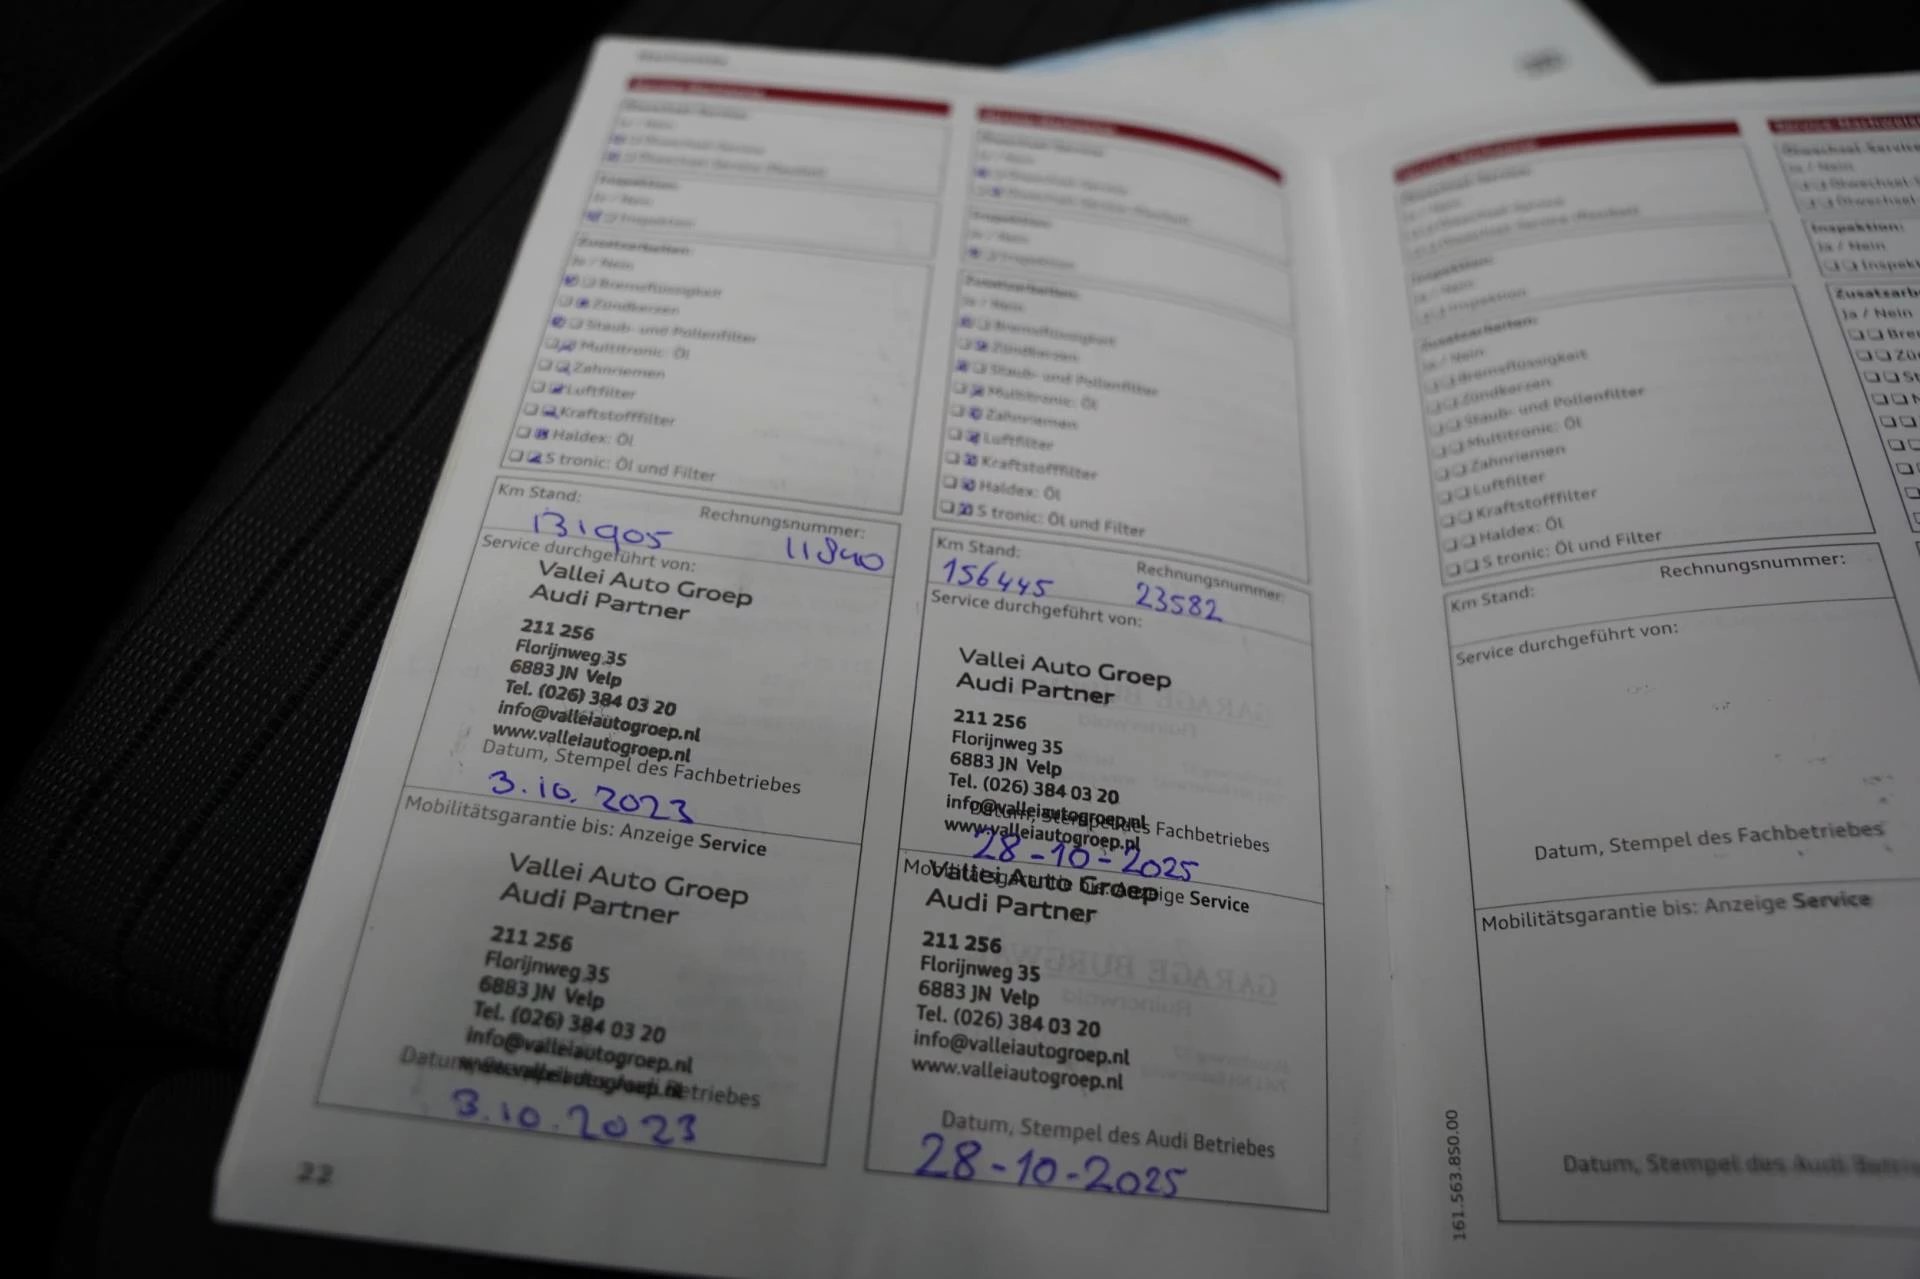 Service-Nachweise
Ölwechsel-Service
Ja / Nein
Ölwechsel-Service
Ölwechsel-Service
Inspektion:
Ja / Nein
Inspektion
Zusatzarbeiten:
Ja / Nein
Bremsflüssigkeit
Zündkerzen
Staub- und Pollenfilter
Multitronic: Öl
Zahnriemen
Luftfilter
Kraftstofffilter
Haldex: Öl
S tronic: Öl und Filter
Km Stand:
Rechnungsnummer:
131905
11840
Service durchgeführt von:
Vallei Auto Groep
Audi Partner
211 256
Florijnweg 35
6883 JN Velp
Tel. (026) 384 03 20
info@valleiautogroep.nl
www.valleiautogroep.nl
Datum, Stempel des Fachbetriebes
3.10.2023
Mobilitätsgarantie bis: Anzeige Service
Vallei Auto Groep
Audi Partner
211 256
Florijnweg 35
6883 JN Velp
Tel. (026) 384 03 20
info@valleiautogroep.nl
www.valleiautogroep.nl
Datum, Stempel des Audi Betriebes
3.10.2023
22
Ölwechsel-Service
Ja / Nein
Ölwechsel-Service
Ölwechsel-Service
Inspektion:
Ja / Nein
Inspektion
Zusatzarbeiten:
Ja / Nein
Bremsflüssigkeit
Zündkerzen
Staub- und Pollenfilter
Multitronic: Öl
Zahnriemen
Luftfilter
Kraftstofffilter
Haldex: Öl
S tronic: Öl und Filter
Km Stand:
Rechnungsnummer:
156445
23582
Service durchgeführt von:
Vallei Auto Groep
Audi Partner
211 256
Florijnweg 35
6883 JN Velp
Tel. (026) 384 03 20
info@valleiautogroep.nl
www.valleiautogroep.nl
Datum, Stempel des Fachbetriebes
28-10-2025
Mobilitätsgarantie bis: Anzeige Service
Vallei Auto Groep
Audi Partner
211 256
Florijnweg 35
6883 JN Velp
Tel. (026) 384 03 20
info@valleiautogroep.nl
www.valleiautogroep.nl
Datum, Stempel des Audi Betriebes
28-10-2025
Ölwechsel-Service
Ja / Nein
Ölwechsel-Service
Ölwechsel-Service
Inspektion:
Ja / Nein
Inspektion
Zusatzarbeiten:
Ja / Nein
Bremsflüssigkeit
Zündkerzen
Staub- und Pollenfilter
Multitronic: Öl
Zahnriemen
Luftfilter
Kraftstofffilter
Haldex: Öl
S tronic: Öl und Filter
Km Stand:
Rechnungsnummer:
Service durchgeführt von:
Datum, Stempel des Fachbetriebes
Mobilitätsgarantie bis: Anzeige Service
Datum, Stempel des Audi Betrie
161.563.850.00
Service-Nachweise
Ölwechsel-Service
Ja / Nein
Ölwechsel-
Ölwechsel-
Inspektion:
Ja / Nein
Inspek
Zusatzarb
Ja / Nein
Bre
Zü
St